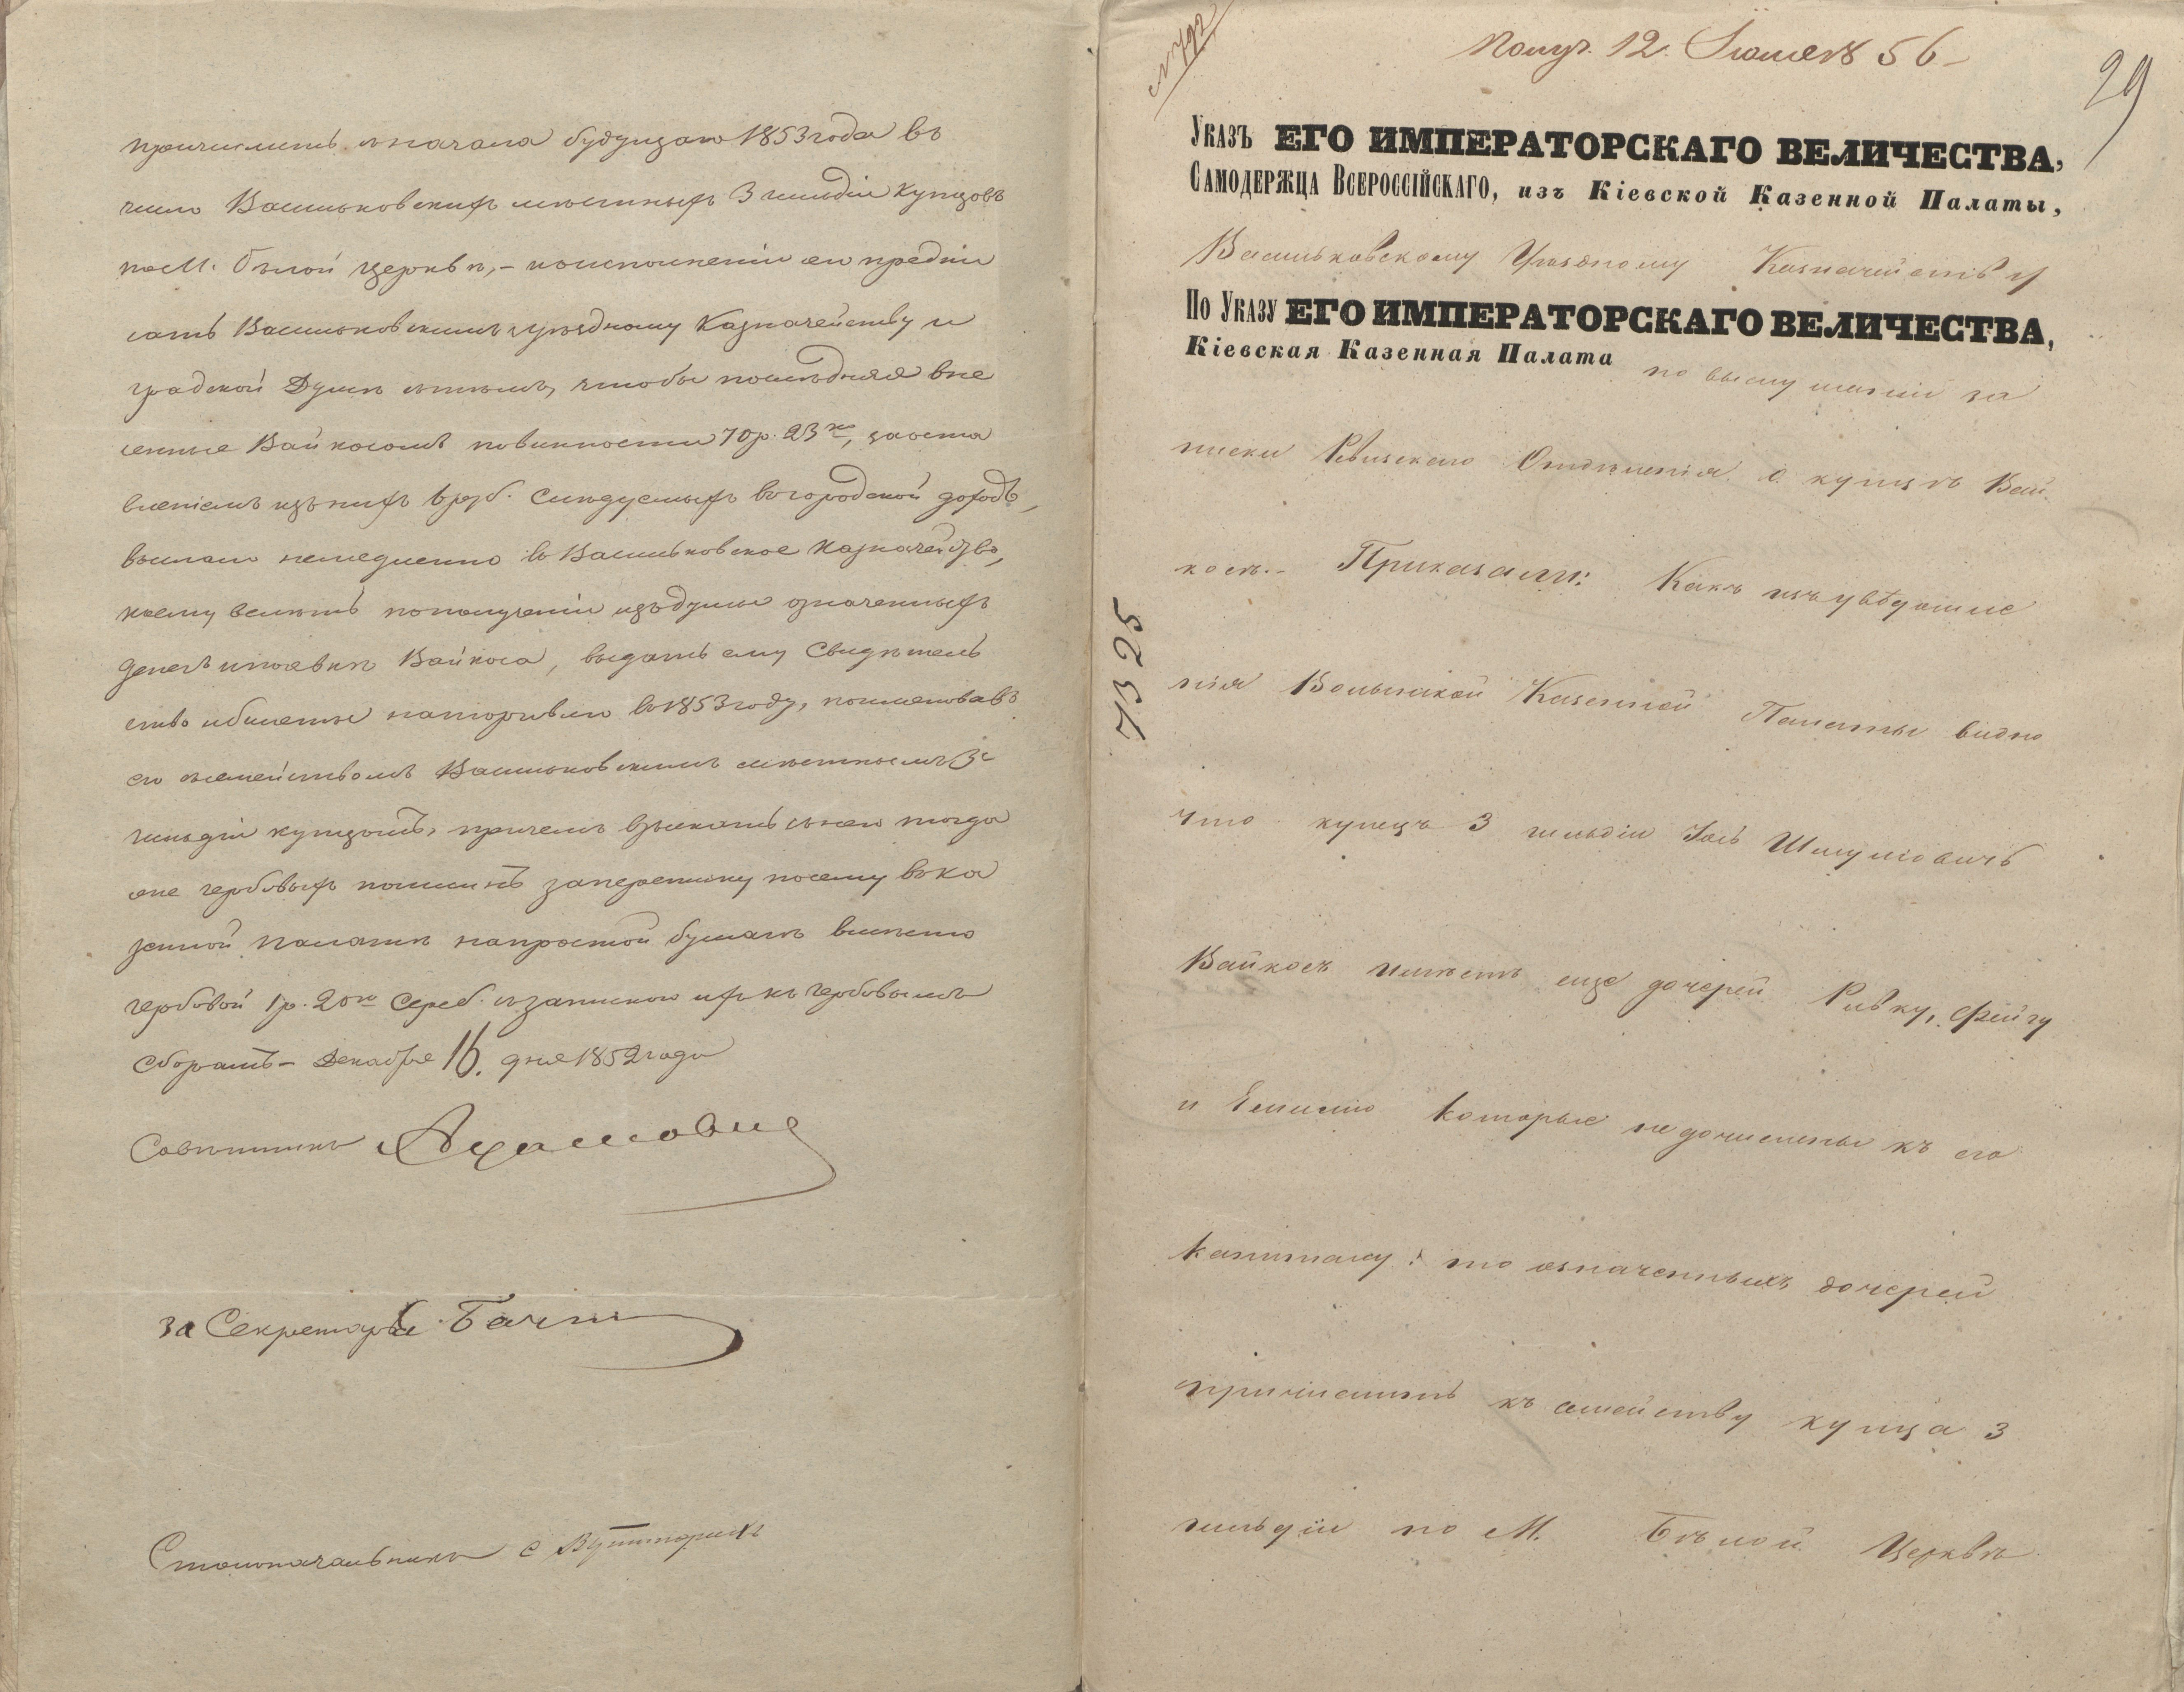 причислить съ начала будущаго 1853 года въ
число Васильковскихъ местныхъ 3 гильдіи купцовъ
по М. Белой церкви, – о исполненіи его предпи
сать Васильковскимъ уездному Казначейству и
градской Думе стемъ, чтобы последняя вне
сенные Вайкосомъ повинности 70 р. 23 ко, за оста
вленіемъ изъ нихъ 6 руб. следуемыхъ въ городской доходъ,
выслала немедленно въ Васильковское Казначейство,
коему велеть по полученіи изъ думы означенныхъ
денегъ и по явке Вайкоса, выдать ему Свидетель
ство и билеты на торговлю въ 1853 году, поименовавъ
его съ семействомъ Васильковскимъ местнымъ 3й
гильдіи купцомъ, причемъ взыскать съ него тогда
же гербовыхъ пошлинъ за переписку по сему въ Ка
зенной Палате на простой бумаге вместо
гербовой 1 р. 20 ко Сереб. съ запискою ихъ къ гербовымъ
сборамъ – Декабря 16. дня 1852 года
Советникъ
за Секретаря
Столоначальникъ
Получ. 12. Іюля 56 –
29
Указъ ЕГО ИМПЕРАТОРСКАГО ВЕЛИЧЕСТВА,
Самодержца Всероссійскаго, изъ Кіевской Казенной Палаты,
Васильковскому Уездному Казначейству
По Указу ЕГО ИМПЕРАТОРСКАГО ВЕЛИЧЕСТВА,
Кіевская Казенная Палата по выслушаніи за
писки Ревизскаго Отделенія о купце Вай-
косе. – Приказали: Какъ изъ уведомле
7325
нія Волынской Казенной Палаты видно
что купецъ 3 гильдіи Іось Шмулѣовичъ
Вайкосъ имеетъ еще дочерей Ривку, Фейгу
и Ентлю которые не дочислены къ его
капиталу: то означенныхъ дочерей
причислить къ семейству купца 3
гильдіи по М. Белой Церкве